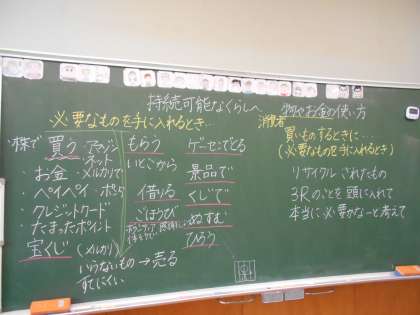 持続可能なくらしへ 物やお金の使い方
☆必要なものを手に入れるとき…
・株で 買う・アマゾン
ネット
・お金 ・メルカリで
・ペイペイ
・クレジットカード
・たまったポイント
宝くじ
(メルカリ)
いらないもの → 売る
すてにくい
もらう
いとこから
借りる
ごほうび
ゲーセンでとる
景品で
くじで
ぬすむ
ひろう
消費者
買いものするときに……
(必要なものを手に入れるとき)
リサイクルされたもの
3Rのことを頭に入れて
本当に必要かなーと考えて